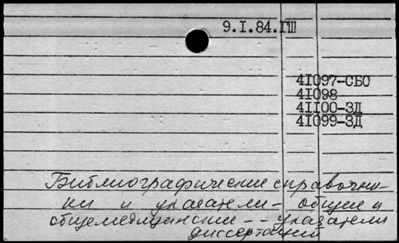 9.I.84.ГШ
41097-СБО
41098
41100-ЗД
41099-ЗД
Библиографические справочни-
ки и указатели - общие и
общемедицинские -- указатели
диссертаций